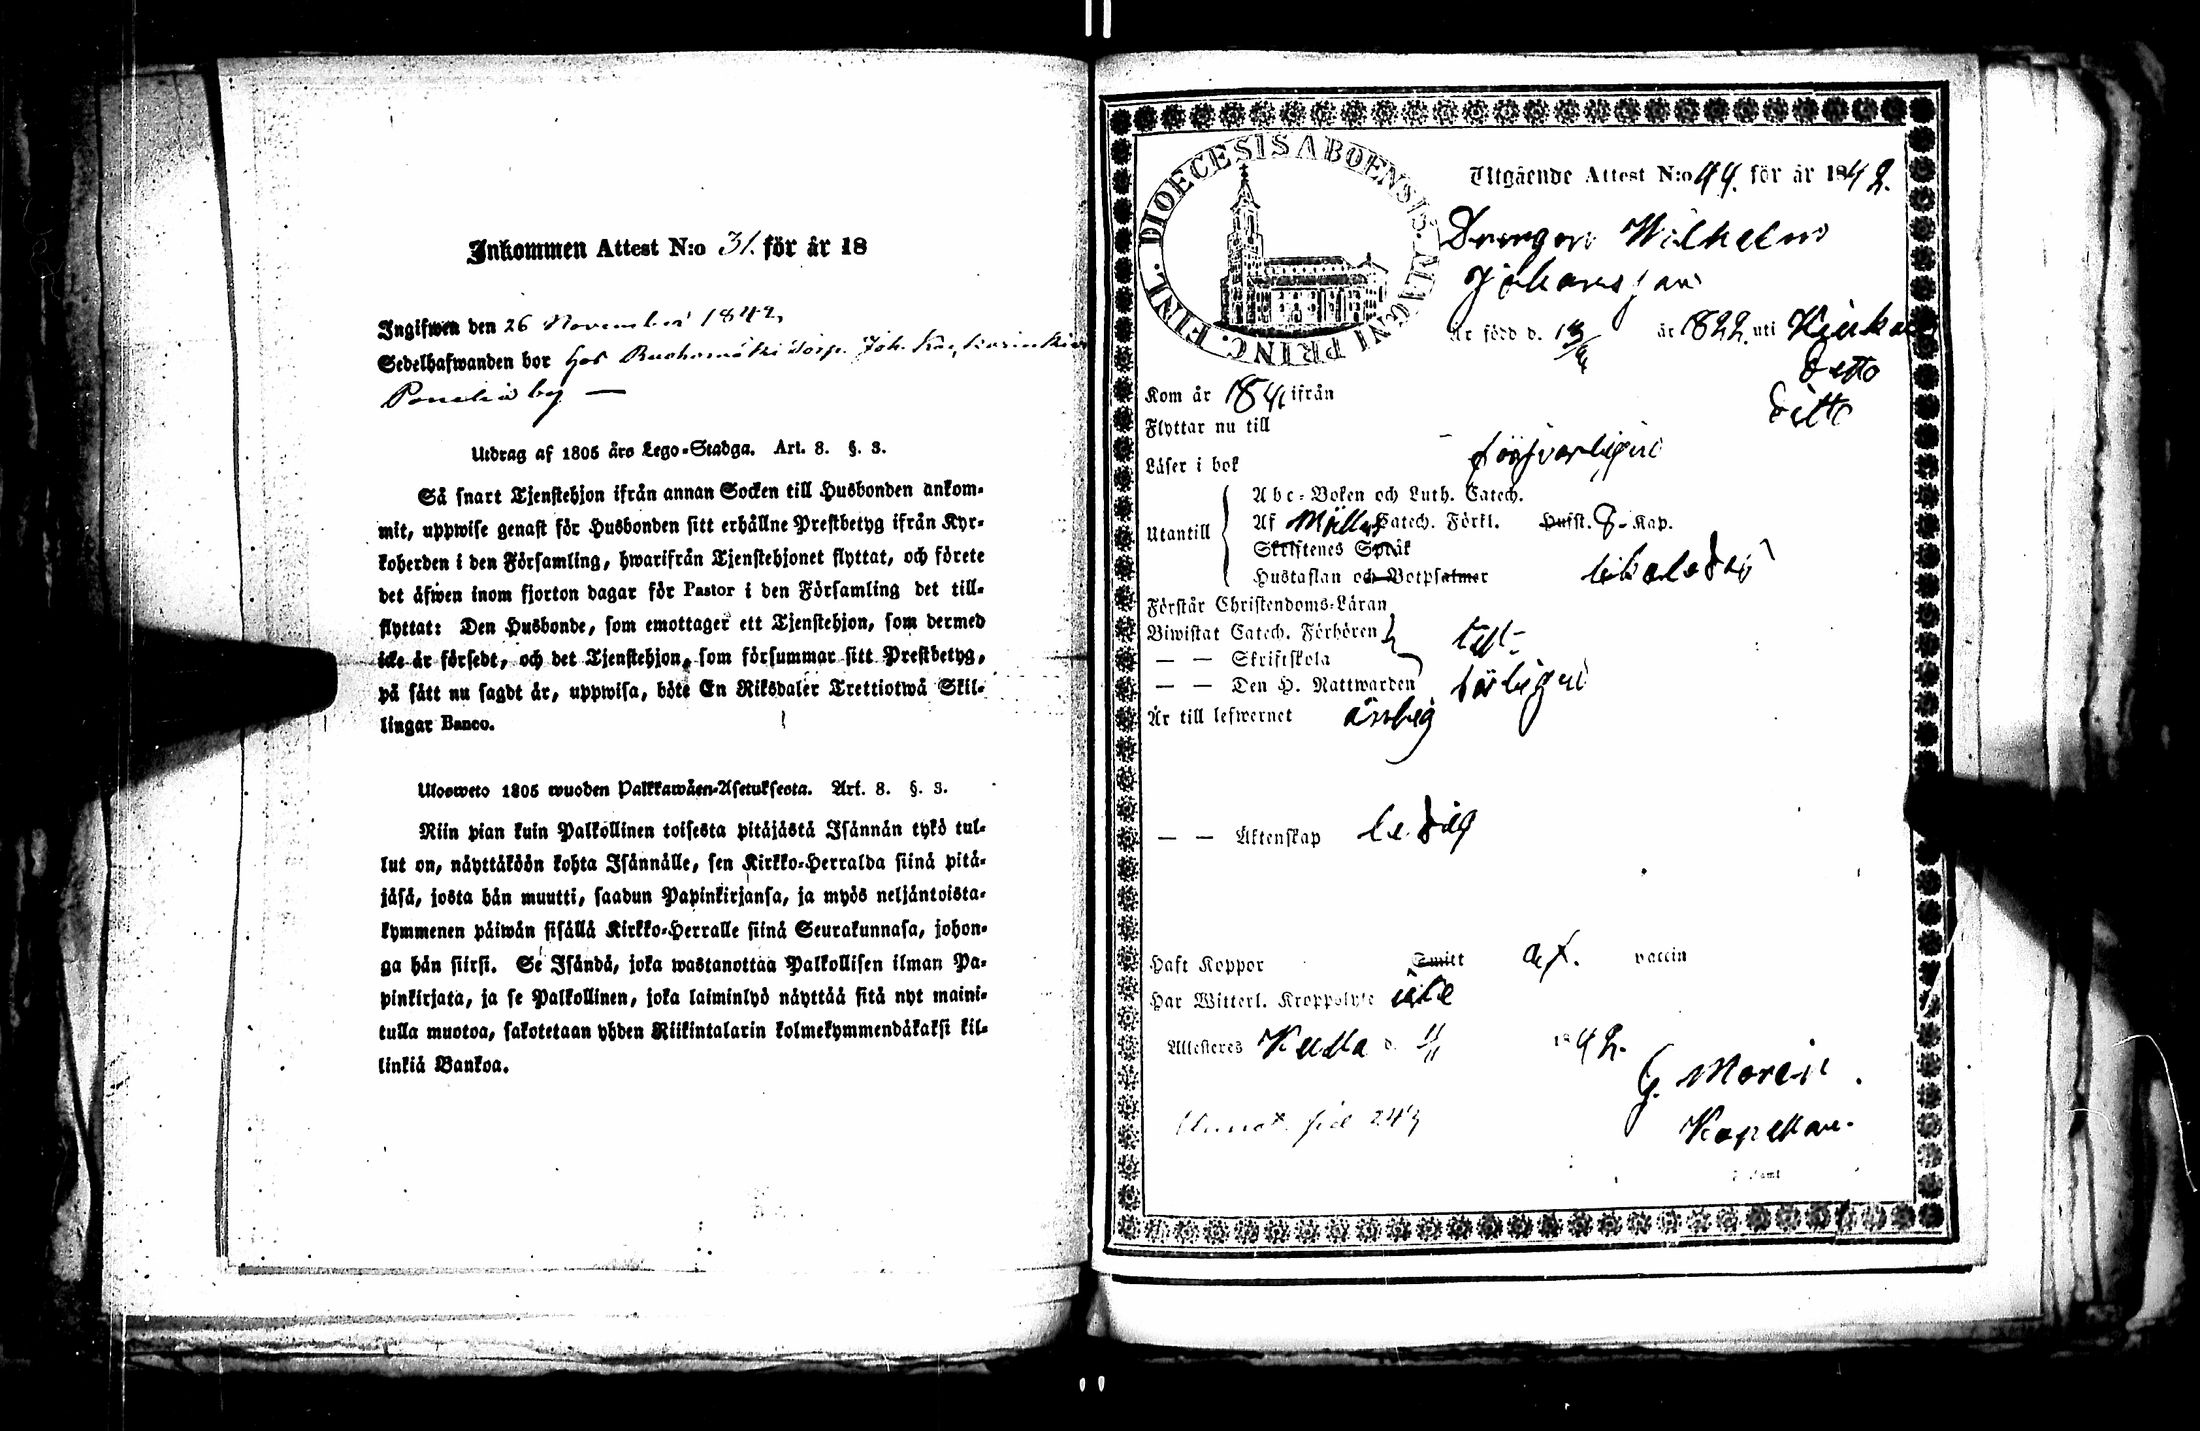 Inkommen Attest N:o 31. för år 18
Ingifwen den 26 November 1842,
Sedelhafwanden bor hos
by —
Utdrag af 1805 års Lego-Stadga. Art. 8. §. 3.
Så snart Tjenstehjon ifrån annan Socken till Husbonden ankom-
mit, uppwise genast för Husbonden sitt erhållne Prestbetyg ifrån Kyr-
koherden i den Församling, hwarifrån Tjenstehjonet flyttat, och förete
det äfwen inom fjorton dagar för Pastor i den Församling det till-
flyttat: Den Husbonde, som emottager ett Tjenstehjon, som dermed
icke är försedt, och det Tjenstehjon, som försummar sitt Prestbetyg,
på sätt nu sagdt är, uppwisa, böte En Riksdaler Trettiotwå Skil-
lingar Banco.
Ulosweto 1805 wuoden Palkkawäen-Asetuksesta. Art. 8. §. 3.
Niin pian kuin Palkollinen toisesta pitäjästä Isännän tykö tul-
lut on, näyttäköön kohta Isännälle, sen Kirkko-Herralda siinä pitä-
jäsä, josta hän muutti, saadun Papinkirjansa, ja myös neljäntoista-
kymmenen päiwän sisällä Kirkko-Herralle siinä Seurakunnasa, johon-
ga hän siirsi. Se Isändä, joka wastanottaa Palkollisen ilman Pa-
pinkirjata, ja se Palkollinen, joka laiminlyö näyttää sitä nyt maini-
tulla muotoa, sakotetaan yhden Riikintalarin kolmekymmendäkaksi kil-
linkiä Bankoa.
FINL. DIOECESIS ABOENSIS. MAGNI PRINC.
Utgående Attest N:o 44. för år 1842.
Drengen Wilhelm
Johansson
Är född d. 13/6 år 1822. uti
Ditto
Kom år 1841 ifrån
Ditto
Flyttar nu till
Läser i bok försvarligen
Utantill
Abc-Boken och Luth. Catech.
Af Möllers Catech. Förkl. Husst. Kap.
Skriftenes Språk
Hustaflan och Botpsalmer
Förstår Christendoms-Läran
Biwistat Catech. Förhören
— — Skriftskola
— — Den H. Nattwarden
Är till lefwernet ärbig
— — Äktenskap ledig
Haft Koppor Smitt af. vaccin
Har Witterl. Kroppslyte icke
Attesteras d. 11/11 1842.
G. Moren
Kapellan.
Annot. sid 243